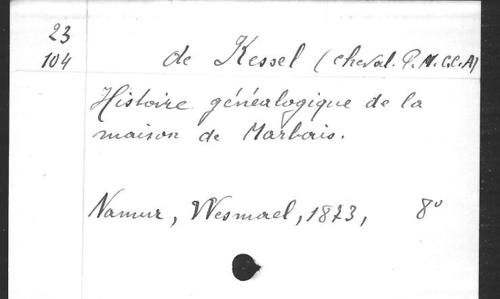 23
104 de Kessel (cheval. P. N. C. C. A)
Histoire généalogique de la
maison de Marbais.
Namur, Wesmael, 1873, 8°